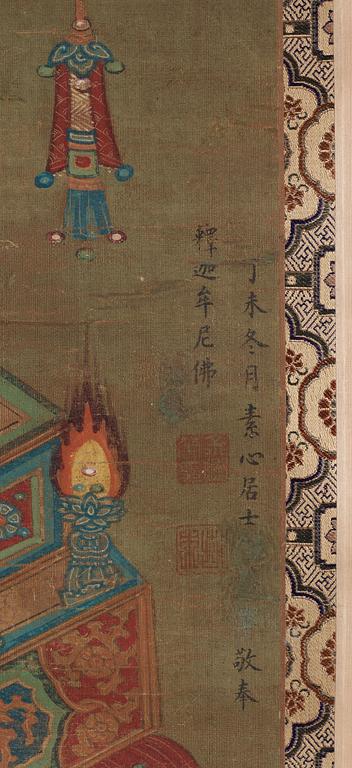 丁未冬月素心居士
敬奉
釋迦牟尼佛